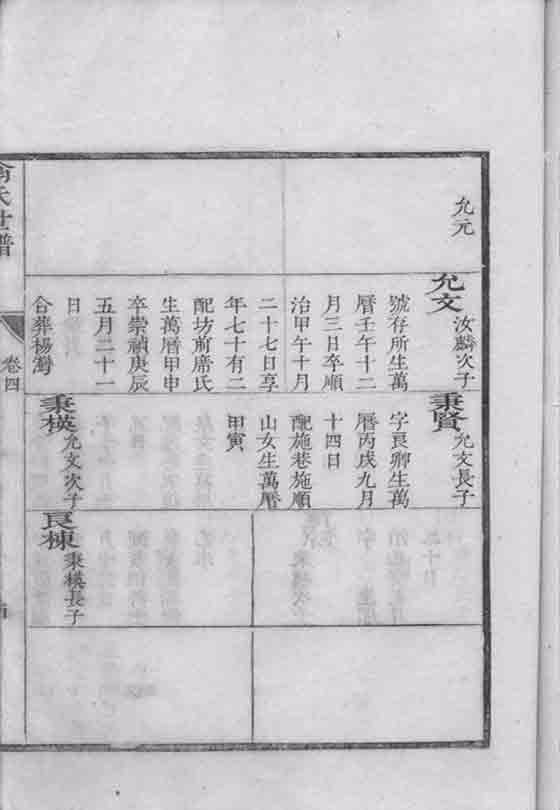 允元
允文
汝麟次子
號存所生萬
曆壬午十二
月三日卒順
治甲午十月
二十七日享
年七十有二
配坊前席氏
生萬曆甲申
卒崇禎庚辰
五月二十一
日
合葬楊灣
秉賢
允文長子
字良卿生萬
曆丙戌九月
十四日
配施巷施順
山女生萬曆
甲寅
秉模
允文次子
良棟
秉模長子
氏世譜
卷四